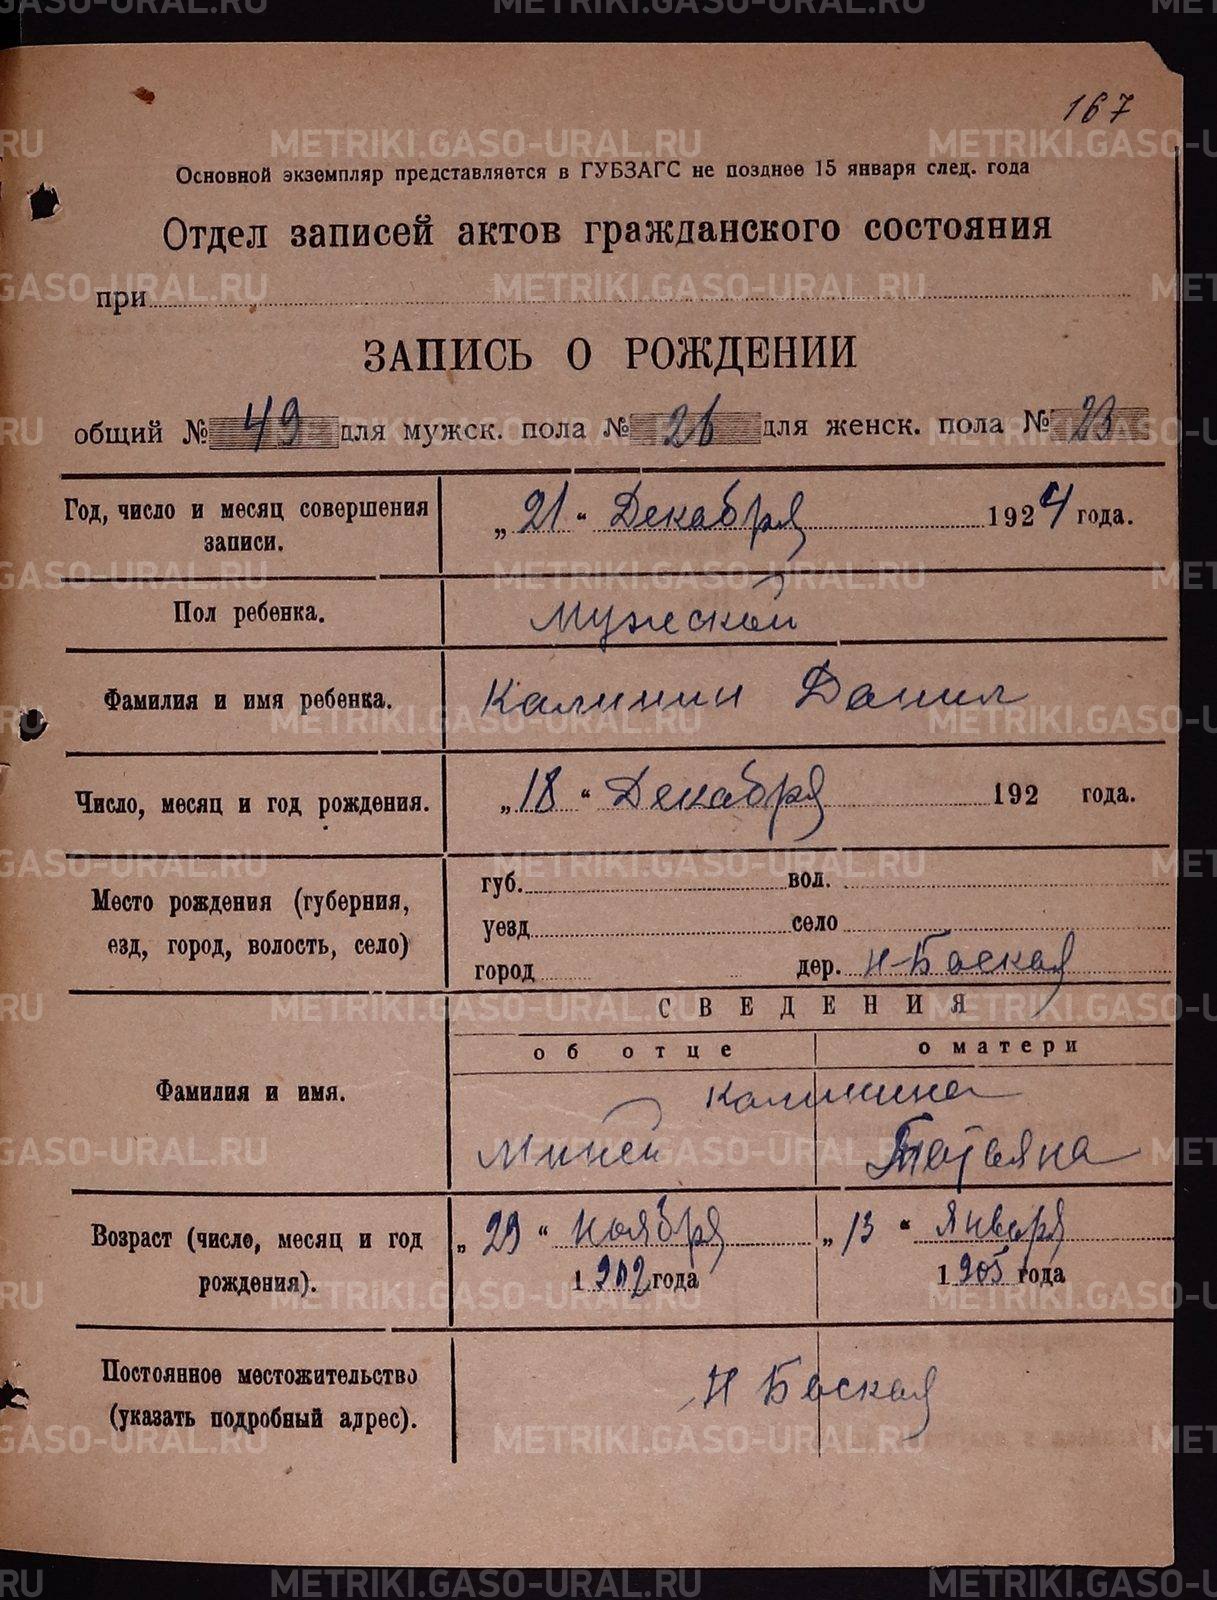 167
Основной экземпляр представляется в ГУБЗАГС не позднее 15 января след. года
Отдел записей актов гражданского состояния
при
ЗАПИСЬ О РОЖДЕНИИ
общий № 49 для мужск. пола № 26 для женск. пола № 23
Год, число и месяц совершения записи. „21“ Декабря 1924 года.
Пол ребенка. Мужской
Фамилия и имя ребенка. Калинин Данил
Число, месяц и год рождения. „18“ Декабря 192 года.
Место рождения (губерния, езд, город, волость, село)
губ. вол.
уезд село
город дер. Н-Баская
СВЕДЕНИЯ
об отце о матери
Фамилия и имя. Калинина
Миней Татьяна
Возраст (число, месяц и год рождения). „29“ Ноября 1902 года „13“ Января 1905 года
Постоянное местожительство (указать подробный адрес). Н Баская
METRIKI.GASO-URAL.RU